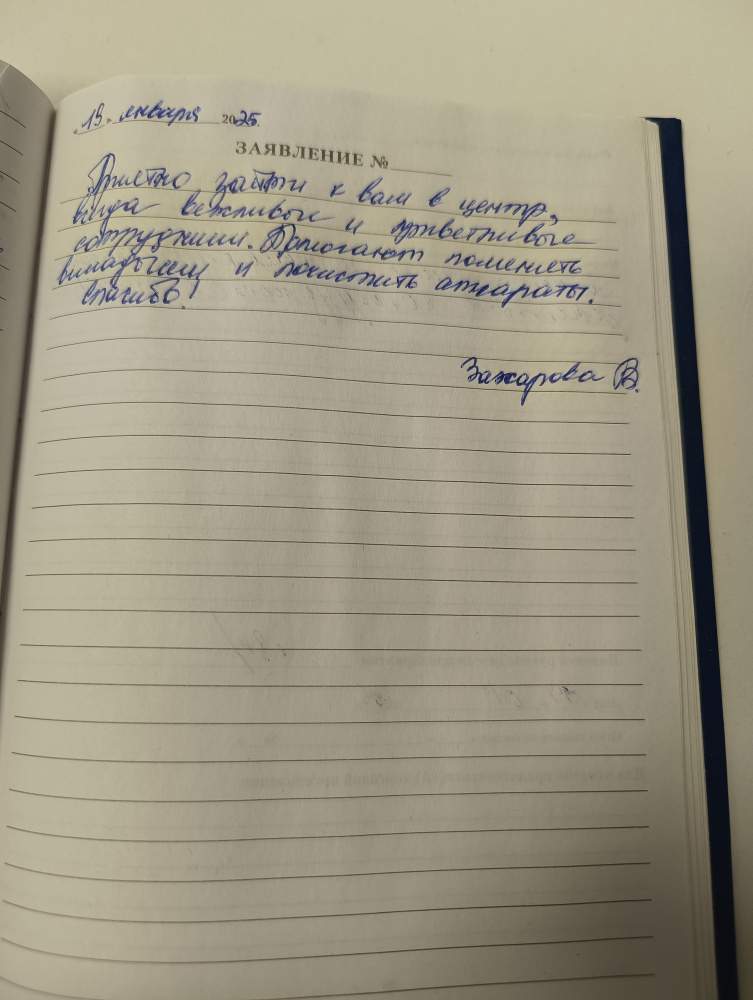 "19" января 2025.
ЗАЯВЛЕНИЕ №
Приятно зайти к вам в центр,
всегда вежливые и приветливые
сотрудники. Помогают поменять
вкладыши и почистить аппараты.
Спасибо!
Захарова В.